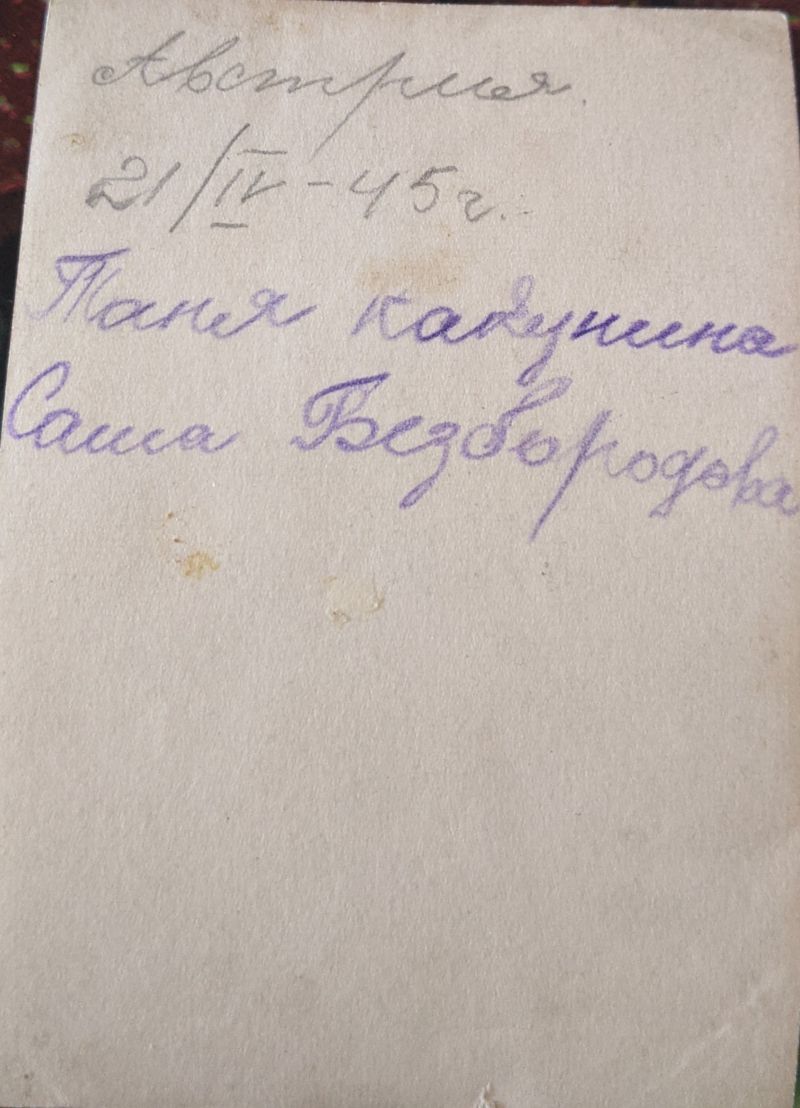 Австрия.
21/IV-45г.
Таня
Саша Безбородова